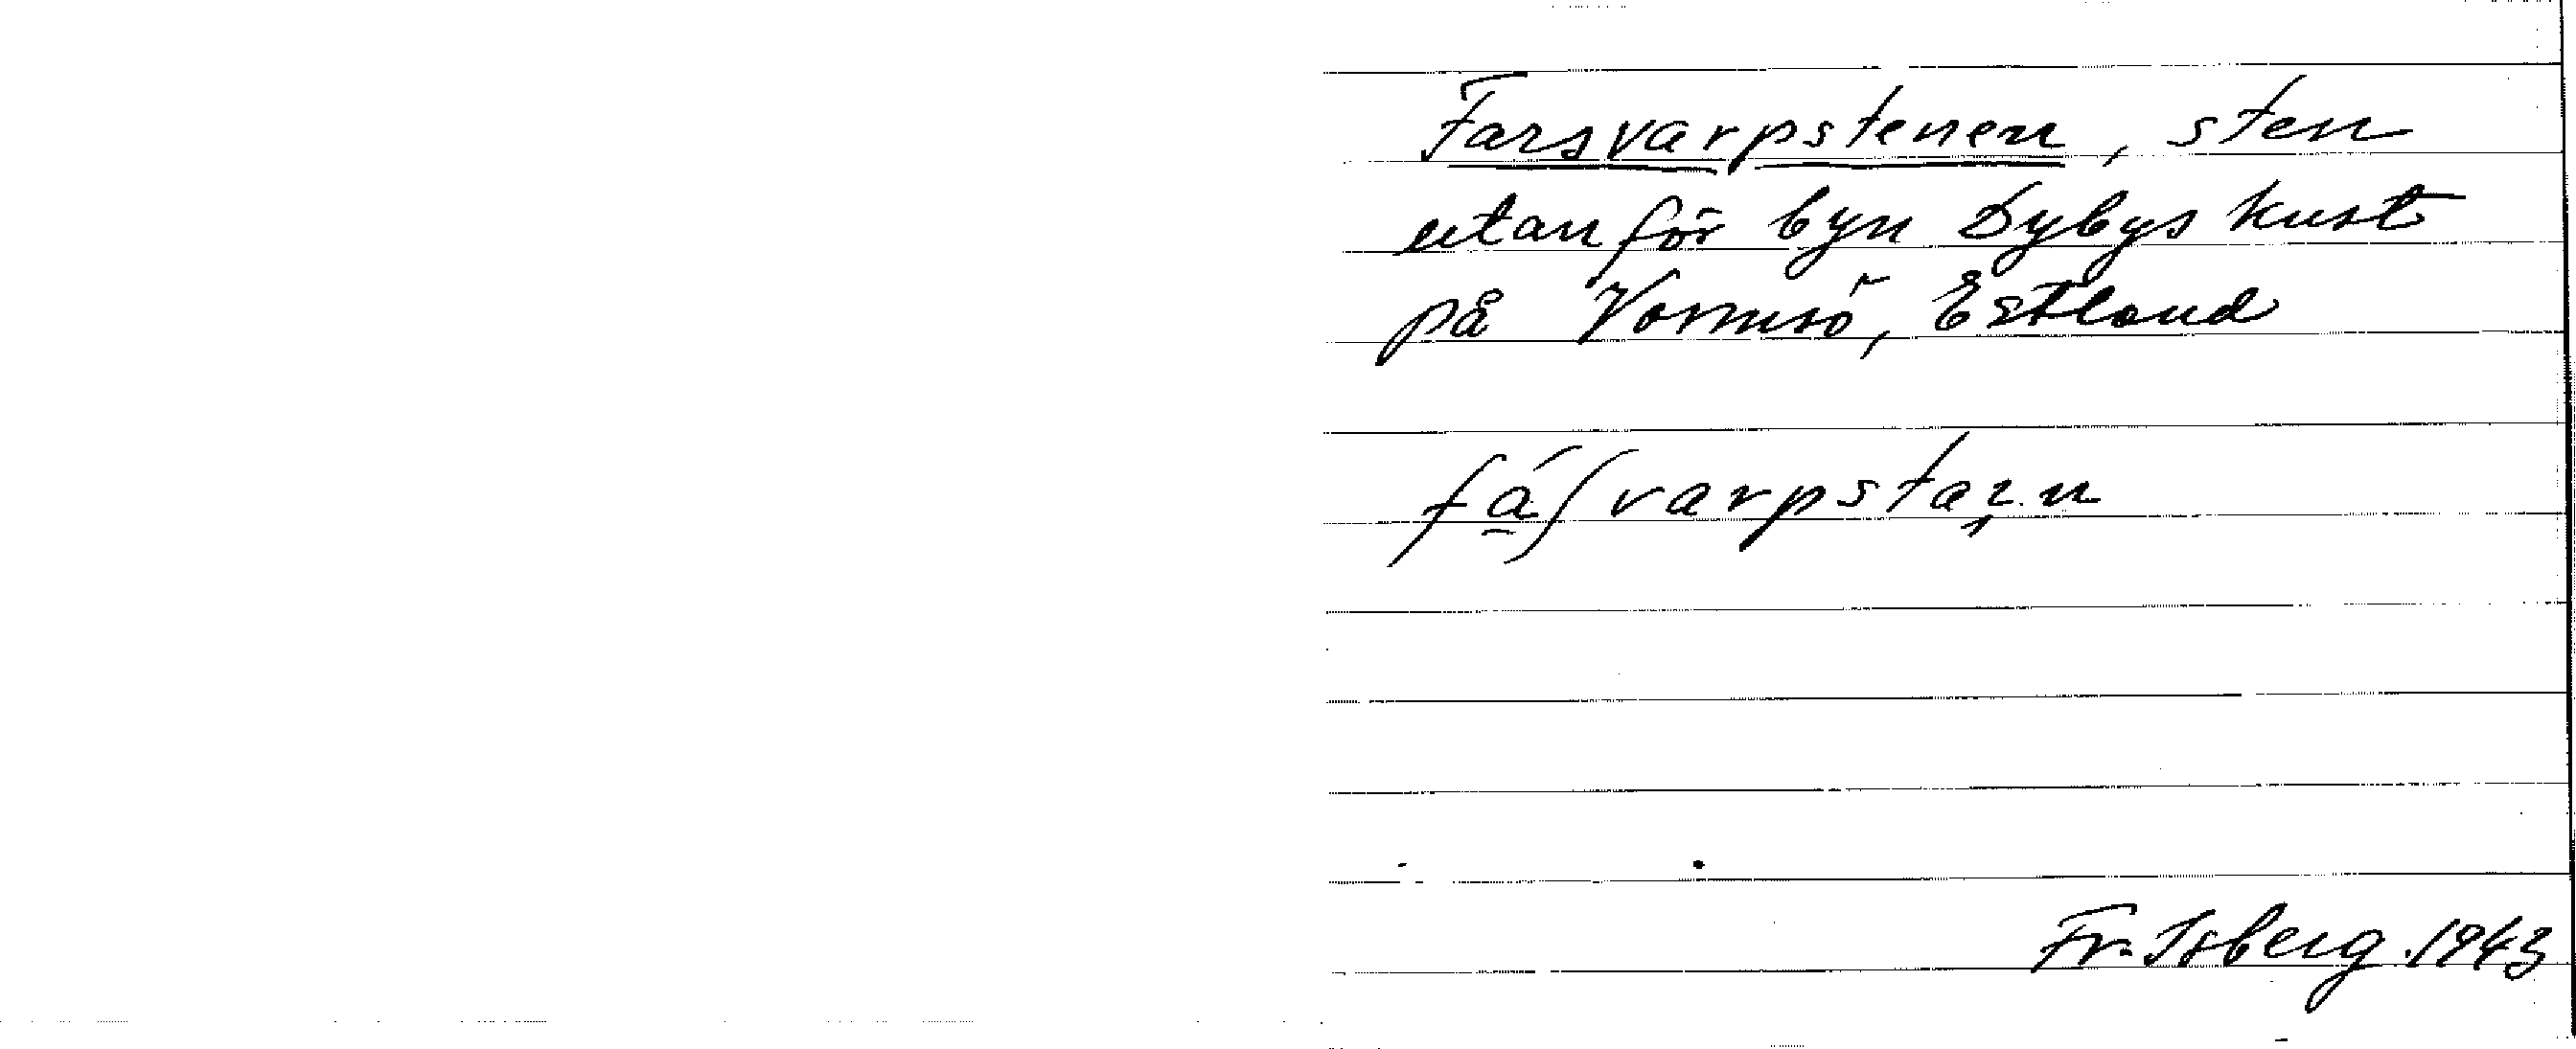 Farsvarpstenen, sten
utanför byn Dybys kust
på Vormsö, Estland
fá̱ʃvarpstaı̨n
Fr. Isberg. 1943